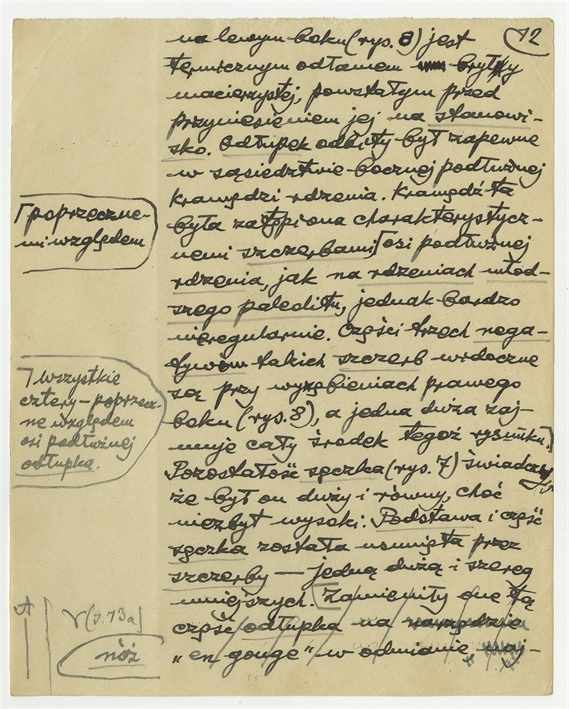 12
na lewym boku (rys. 8) jest
termicznym odłamem bryły
macierzystej, powstałym przed
przyniesieniem jej na stanowi-
sko. Odłupek odbity był zapewne
w sąsiedztwie bocznej podłużnej
krawędzi rdzenia. Krawędź ta
była zatępiona charakterystycz-
nemi szczerbami ⌈ osi podłużnej
rdzenia, jak na rdzeniach młod-
szego paleolitu, jednak bardzo
nieregularnie. Części trzech nega-
tywów takich szczerb widoczne
są przy wyzębieniach prawego
boku (rys. 8), a jedna duża zaj-
muje cały środek tegoż rysunku.
Pozostałość sęczka (rys. 7) świadczy
że był on duży i równy, choć
niezbyt wysoki. Podstawa i część
sęczka została usunięta przez
szczerby — jedną dużą i szereg
mniejszych. [Zamieniły one tę
część odłupka na narzędzie
„en gouge" w odmianie, naj-
⌈ poprzeczne-
mi względem
⌉ wszystkie
cztery – poprzecz-
ne względem
osi podłużnej
odłupka.
A
V (s. 13a)
nóż